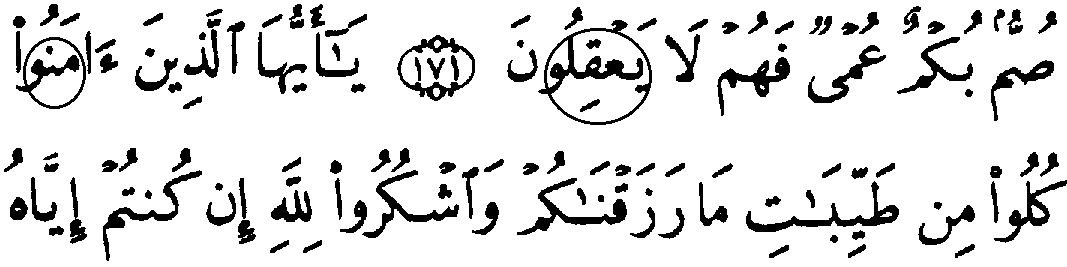 صُمٌّۢ بُكْمٌ عُمْىٌ فَهُمْ لَا يَعْقِلُونَ ١٧١ يَـٰٓأَيُّهَا ٱلَّذِينَ ءَامَنُوا۟
كُلُوا۟ مِن طَيِّبَـٰتِ مَا رَزَقْنَـٰكُمْ وَٱشْكُرُوا۟ لِلَّهِ إِن كُنتُمْ إِيَّاهُ